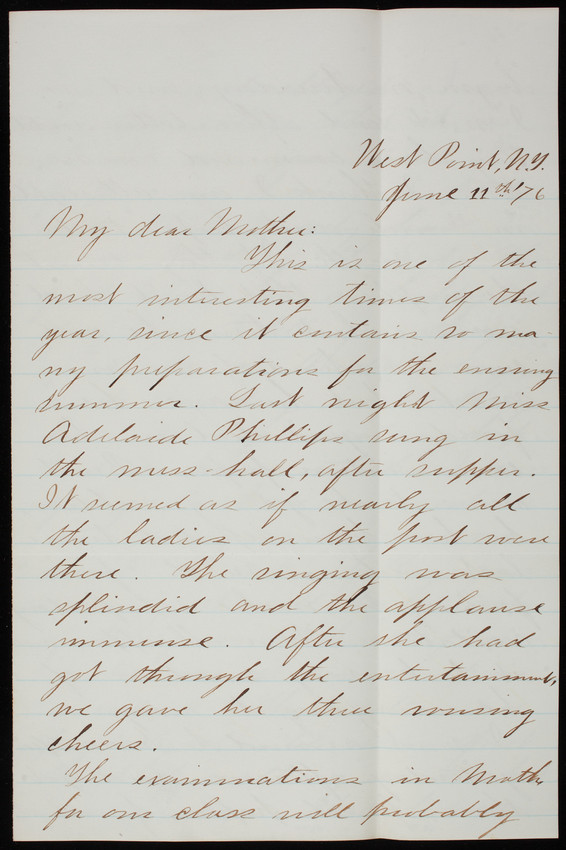 West Point, N.Y.
June 11th '76
My dear Mother:
This is one of the
most interesting times of the
year, since it contains so ma-
ny preparations for the ensuing
summer. Last night Miss
Adelaide Phillips sung in
the mess-hall, after supper.
It seemed as if nearly all
the ladies on the post were
there. The singing was
splindid and the applause
immense. After she had
got through the entertainment,
we gave her three rousing
cheers.
The examinations in Math.
for our class will probably